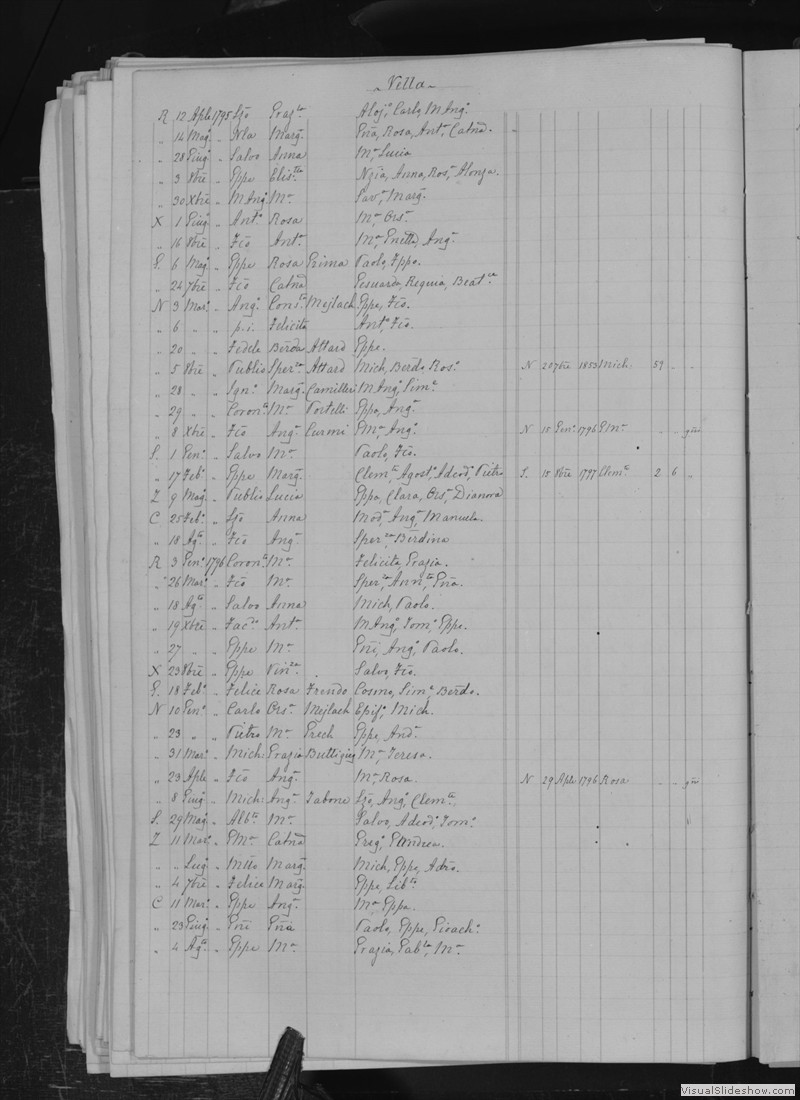 Vella
R 12 Aple 1795 Lzo Graz^la Aloj^o, Carlo, M Ang^a
" 14 Mag^o " Nla Marg^a Gña, Rosa, Ant^a, Catña.
" 28 Giug^o " Salvo Anna M^a Lucia
" 3 8bre " Gppe Elis^tta Nzia, Anna, Ros^a, Alonza.
" 30 Xbre " M Ang^o M^a Sav^a Marg^a
X 1 Giug^o " Ant^o Rosa M^a Ors^a
" 16 8bre " Fco Ant^a M^a, Ang^a
G. 6 Mag^o " Gppe Rosa Grima Paolo, Gppe.
" 24 7bre " Fco Catña Gesuardo, Reguia, Beat^ce
N 3 Mar^o " Ang^o Cons^ta Mejlach Gppe, Fco.
" 6 " " p.i. Felicita Ant^o, Fco.
" 20 " " Fedele Berda Attard Gppe.
" 5 8bre " Publio Sper^za Attard Mich, Berdo, Ros^o N 20 7bre 1853 Mich: 59 " "
" 28 " " Ign^o Marg^a Camilleri M Ang^o, Sim^e
" 29 " " Coron^to M^a Portelli Gppe, Ang^o
" 8 Xbre " Fco Ang^a Curmi EM^e, Ang^o N 15 Gen^o 1796 EM^e " " gni
S. 1 Gen^o " Salvo M^a Paolo, Fco.
" 17 Feb^o " Gppe Marg^a Clem^te, Agost^o, Adeod^o, Pietro S. 18 8bre 1797 Clem^e 2 6 "
Z 9 Mag^o " Publio Lucia Gppa, Clara, Ors^a, Dianora
C 25 Feb^o " Lzo Anna Mod^a, Ang^a, Manuela.
" 18 Ag^to " Fco Ang^a Sper^za, Berdina
R 3 Gen^o 1796 Coron^to M^a Felicita, Grazia.
" 26 Mar^o " Fco M^a Sper^za, Ann^tta, Gña.
" 18 Ag^to " Salvo Anna Mich, Paolo.
" 19 Xbre " Fac^do Ant^a M Ang^o, Tom^o, Gppe.
" 27 " " Gppe M^a Gñi, Ang^o, Paolo.
X 23 8bre " Gppe Vin^za Salvo, Fco.
G. 18 Feb^o " Felice Rosa Frendo Cosmo, Sim^e, Berdo.
N 10 Gen^o " Carlo Ors^a Mejlach Epif^o, Mich.
" 23 " " Pietro M^a Grech Gppe, And^a
" 31 Mar^o " Mich: Grazia Buttigieg M^a Teresa.
" 23 Aple " Fco Ang^a M^a Rosa. N 29 Aple 1796 Rosa " " gni
" 8 Giug^o " Mich: Ang^a Tabone Lzo, Ang^o, Clem^te.
S. 29 Mag^o " Alb^to M^a Salvo, Adeod^o, Tom^o
Z 11 Mar^o " EM^e Catña Greg^o, Andrea.
" " Lug^o " Mtto Marg^a Mich, Gppe, Adro.
" 4 7bre " Felice Marg^a Gppe, Lib^to
C 11 Mar^o " Gppe Ang^a M^a Gppa.
" 23 Giug^o " Gñi Gña Paolo, Gppe, Girach^o
" 4 Ag^to " Gppe M^a Grazia, Gab^la, M^a
VisualSlideshow.com